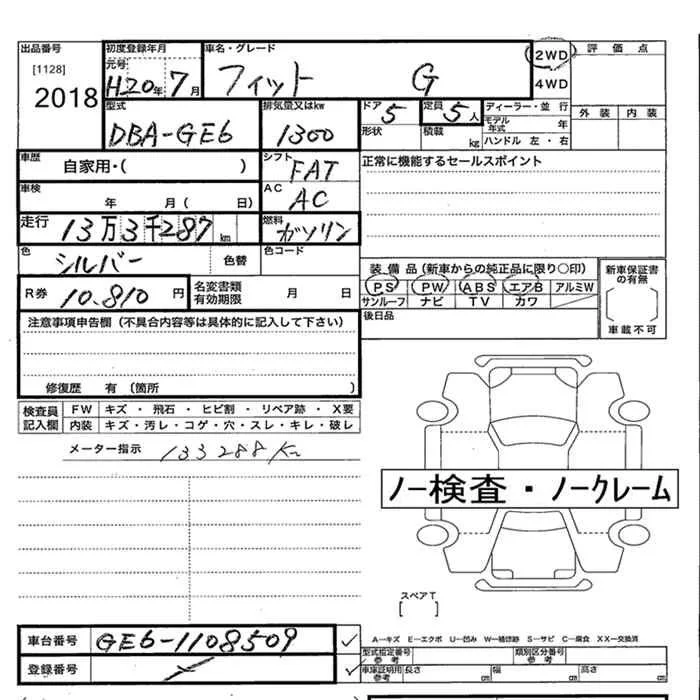 出品番号 初度登録年月 車名・グレード 2WD 評価点
[1128] 元号 H20年 7月 フィット G 4WD
2018 外装 内装
型式 排気量又はkw ドア 5 定員 5人 ディーラー・並行
DBA-GE6 1300 形状 積載 kg モデル年式 年
ハンドル 左・右
車歴 自家用・( ) シフト FAT 正常に機能するセールスポイント
車検 年 月( 日) AC AC
走行 13万3千287km 燃料 ガソリン
色 シルバー 色替 色コード
装備品(新車からの純正品に限り○印) 新車保証書の有無
R券 10.810円 名変書類有効期限 月 日 PS PW ABS エアB アルミW
サンルーフ ナビ TV カワ
車載不可
注意事項申告欄(不具合内容等は具体的に記入して下さい) 後日品
修復歴 有(箇所 )
検査員記入欄 FW キズ・飛石・ヒビ割・リペア跡・X要
内装 キズ・汚レ・コゲ・穴・スレ・キレ・破レ
メーター指示 133288K
ノー検査・ノークレーム
スペアT
[ ]
車台番号 GE6-1108509 A―キズ E―エクボ U―凹み W―補修跡 S―サビ C―腐食 XX―交換済
型式指定番号 参考 類別区分番号 参考
登録番号 車庫証明用参考 長さ cm 幅 cm 高さ cm